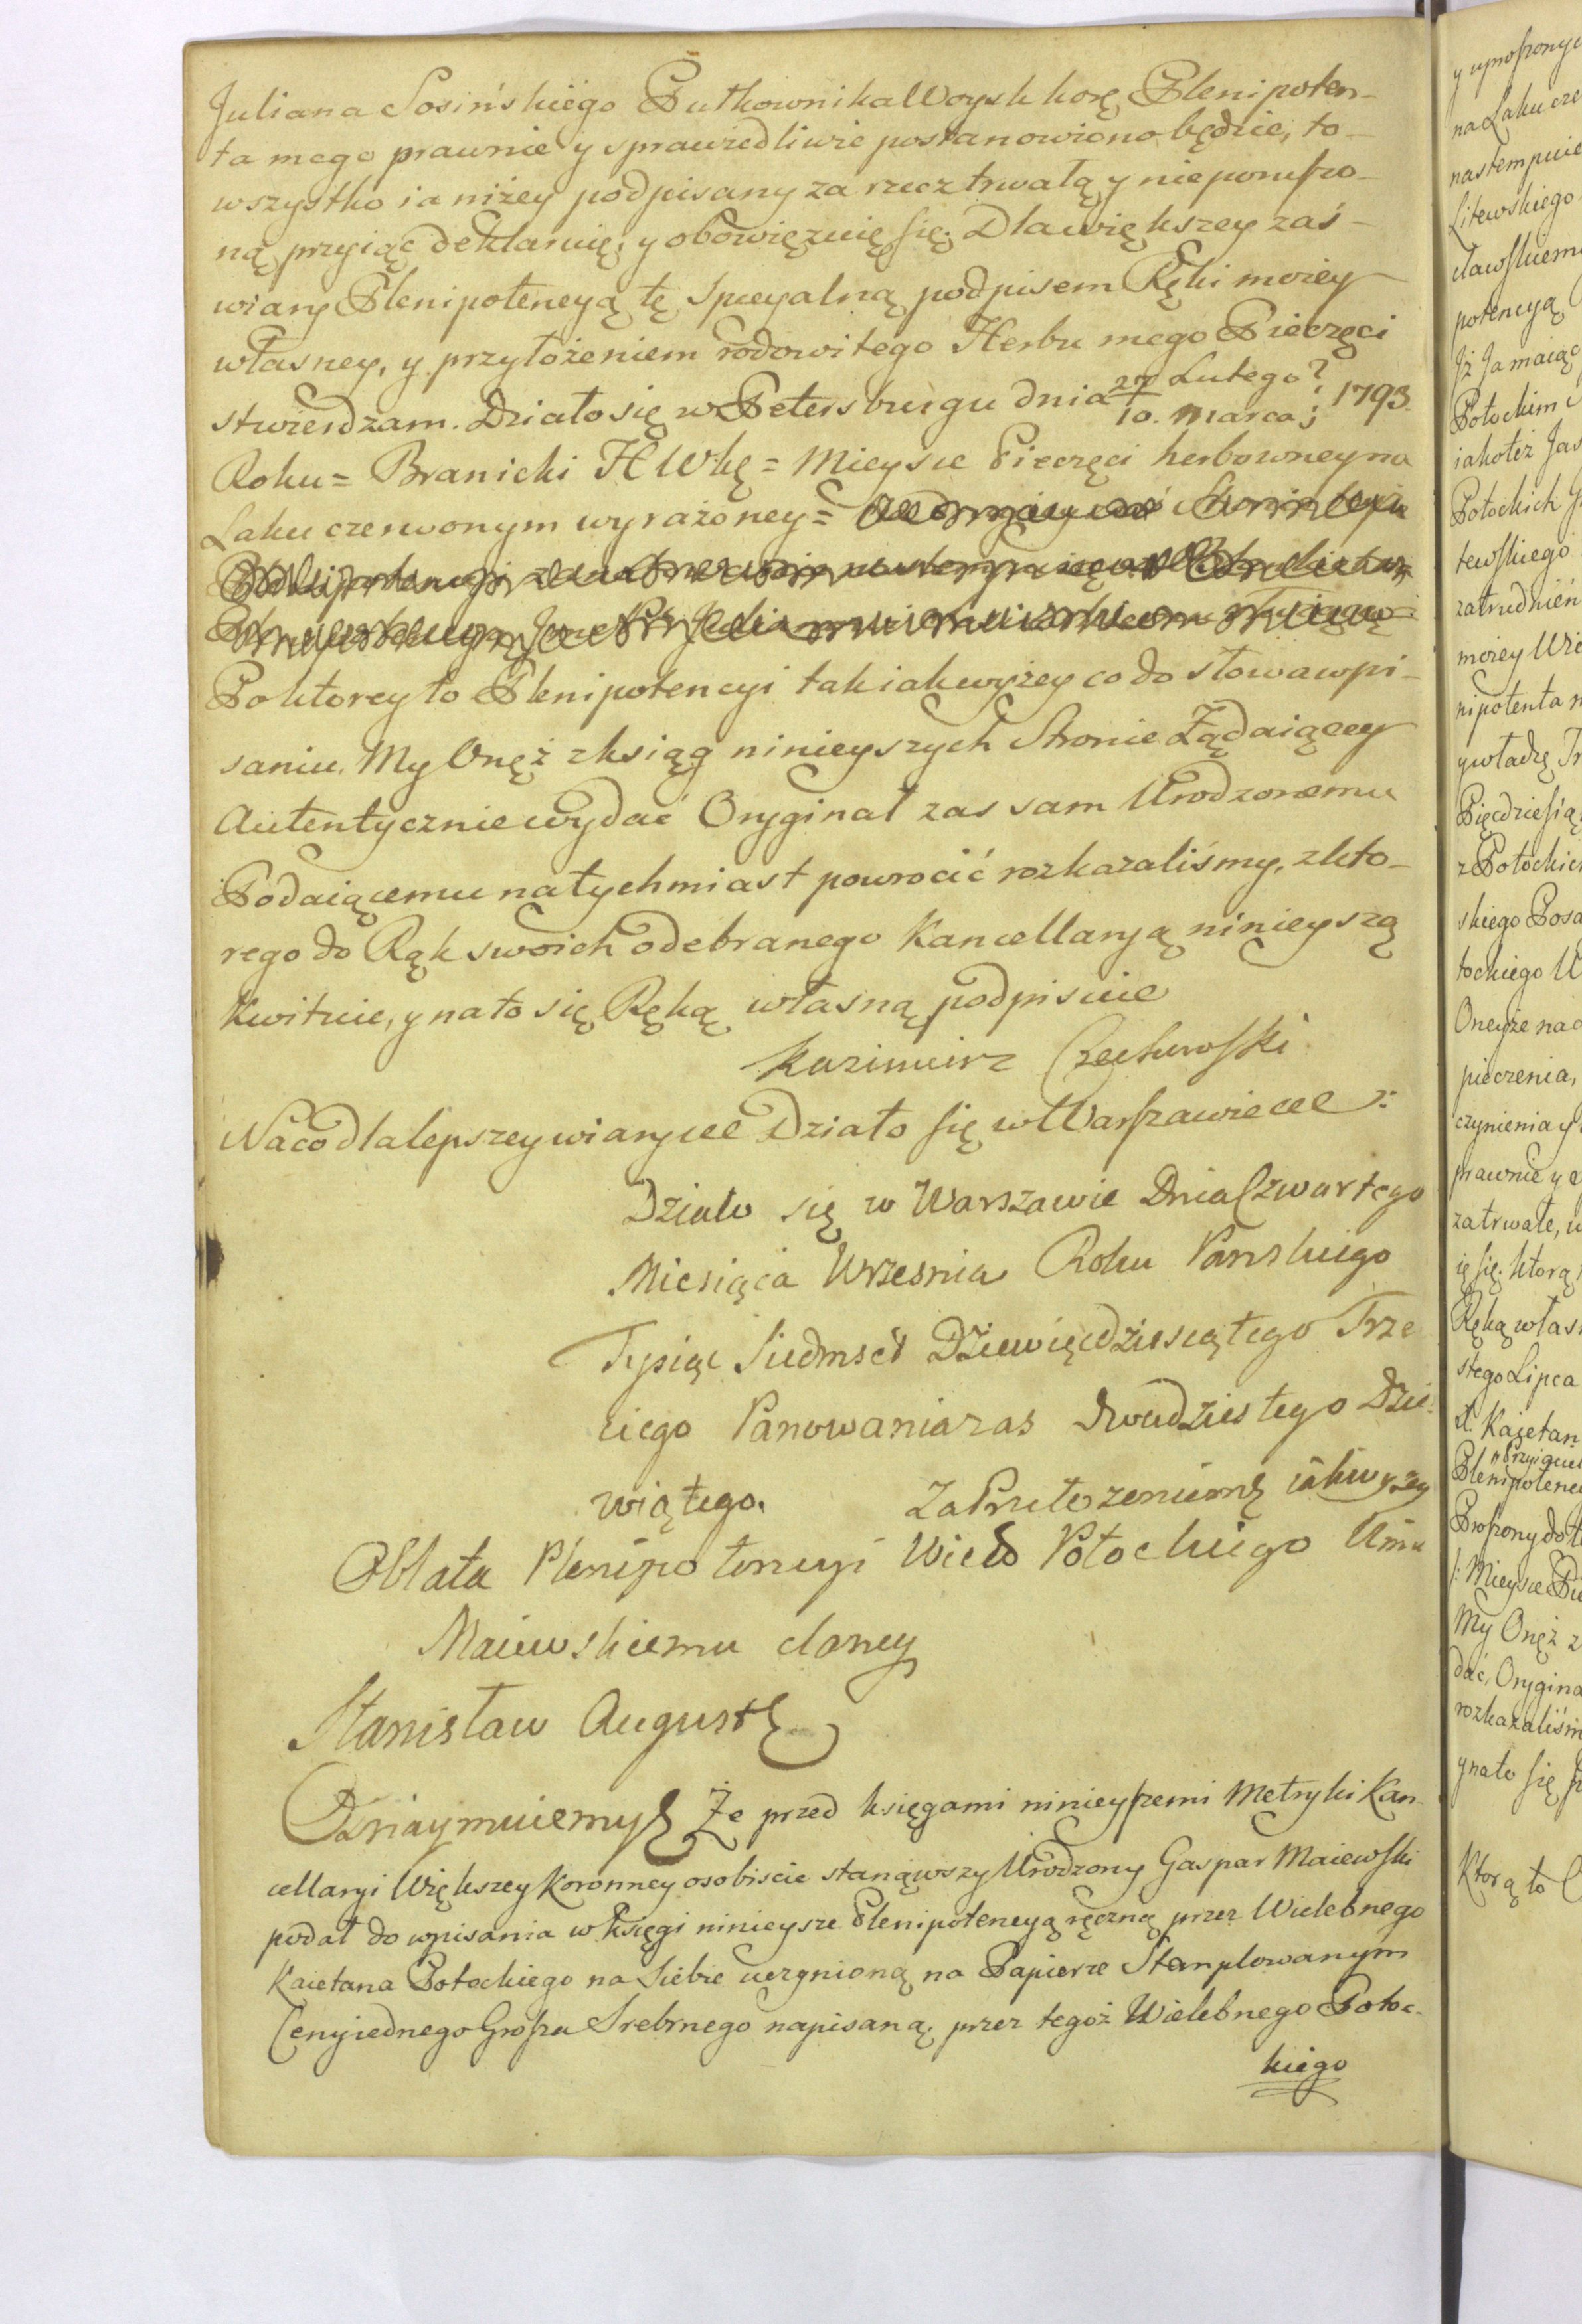 Juliana Sosińskiego Pułkownika Woysk korę Plenipoten-
ta mego prawnie y sprawiedliwie postanowiono będzie, to-
wszystko ia niżey podpisany za rzecz trwałą y nieporuszo-
ną przyiąc deklaruię, y obowięzuię się. Dla większey zaś-
wiary Plenipotencyą tę specyalną podpisem Ręki moiey
własney, y przyłożeniem rodowitego Herbu mego Pieczęci
stwierdzam. Działo się w Petersburgu dnia 27 Lutego / 10. Marca 1793.
Roku = Branicki H W kę = Mieysce Pieczęci herbowney na
Laku czerwonym wyrażoney =
Po ktorey to Plenipotencyi tak iak wyżey co do słowa wpi-
saniu. My Onęż z ksiąg ninieyszych Stronie Żądaiącey
Autentycznie wydać Oryginał zas sam Urodzonemu
Podaiącemu natychmiast powrocić rozkazaliśmy, z kto-
rego do Rąk swoich odebranego Kancellaryą ninieyszą
Kwituie, y na to się Ręką własną podpisuie
Kazimierz Czechowski
Na co dla lepszey wiary ece Działo się w Warszawie ece :
Działo się w Warszawie Dnia Czwartego
Miesiąca Wrzesnia Roku Panskiego
Tysiąc Siedmset Dziewięcdziesiątego Trze
ciego Panowania zas Dwudziestego Dzie-
wiątego. Za Przełożeniemę iak wyżey
Oblata Plenipotencyi Wielo Potockiego Urmu
Maiewskiemu daney
Stanisław Augustę
Oznaymuiemyę Że przed księgami ninieyszemi Metryki Kan-
cellaryi Większey Koronney osobiscie stanąwszy Urodzony Gaspar Maiewski
podał do wpisania w księgi ninieysze Plenipotencyą ręczną przez Wielebnego
Kaietana Potockiego na siebie uczynioną na Papierze Stemplowanym
Ceny iednego Grosza Srebrnego napisaną, przez tegoż Wielebnego Potoc-
kiego
y uproszony
na Laku cze
nastempuie
Litewskiego
potencyą
Jż Ja maiąc
Potockim
iakoteż Jas
Potockich
tewskiego
zatrudnień
moiey
nipotenta
y władzę
Pięcdziesią
z Potockie
skiego
tockiego
Oneyże na
pieczenia,
czynienia y
prawnie y
za trwałe,
ię się. ktorą
Ręką włas
stego Lipca
X. Kaietan
Plenipotenc
Proszony do
/: Mieysce Pie
My Onęż z
dać, Orygina
rozkazaliśm
y na to się p
Ktorą to